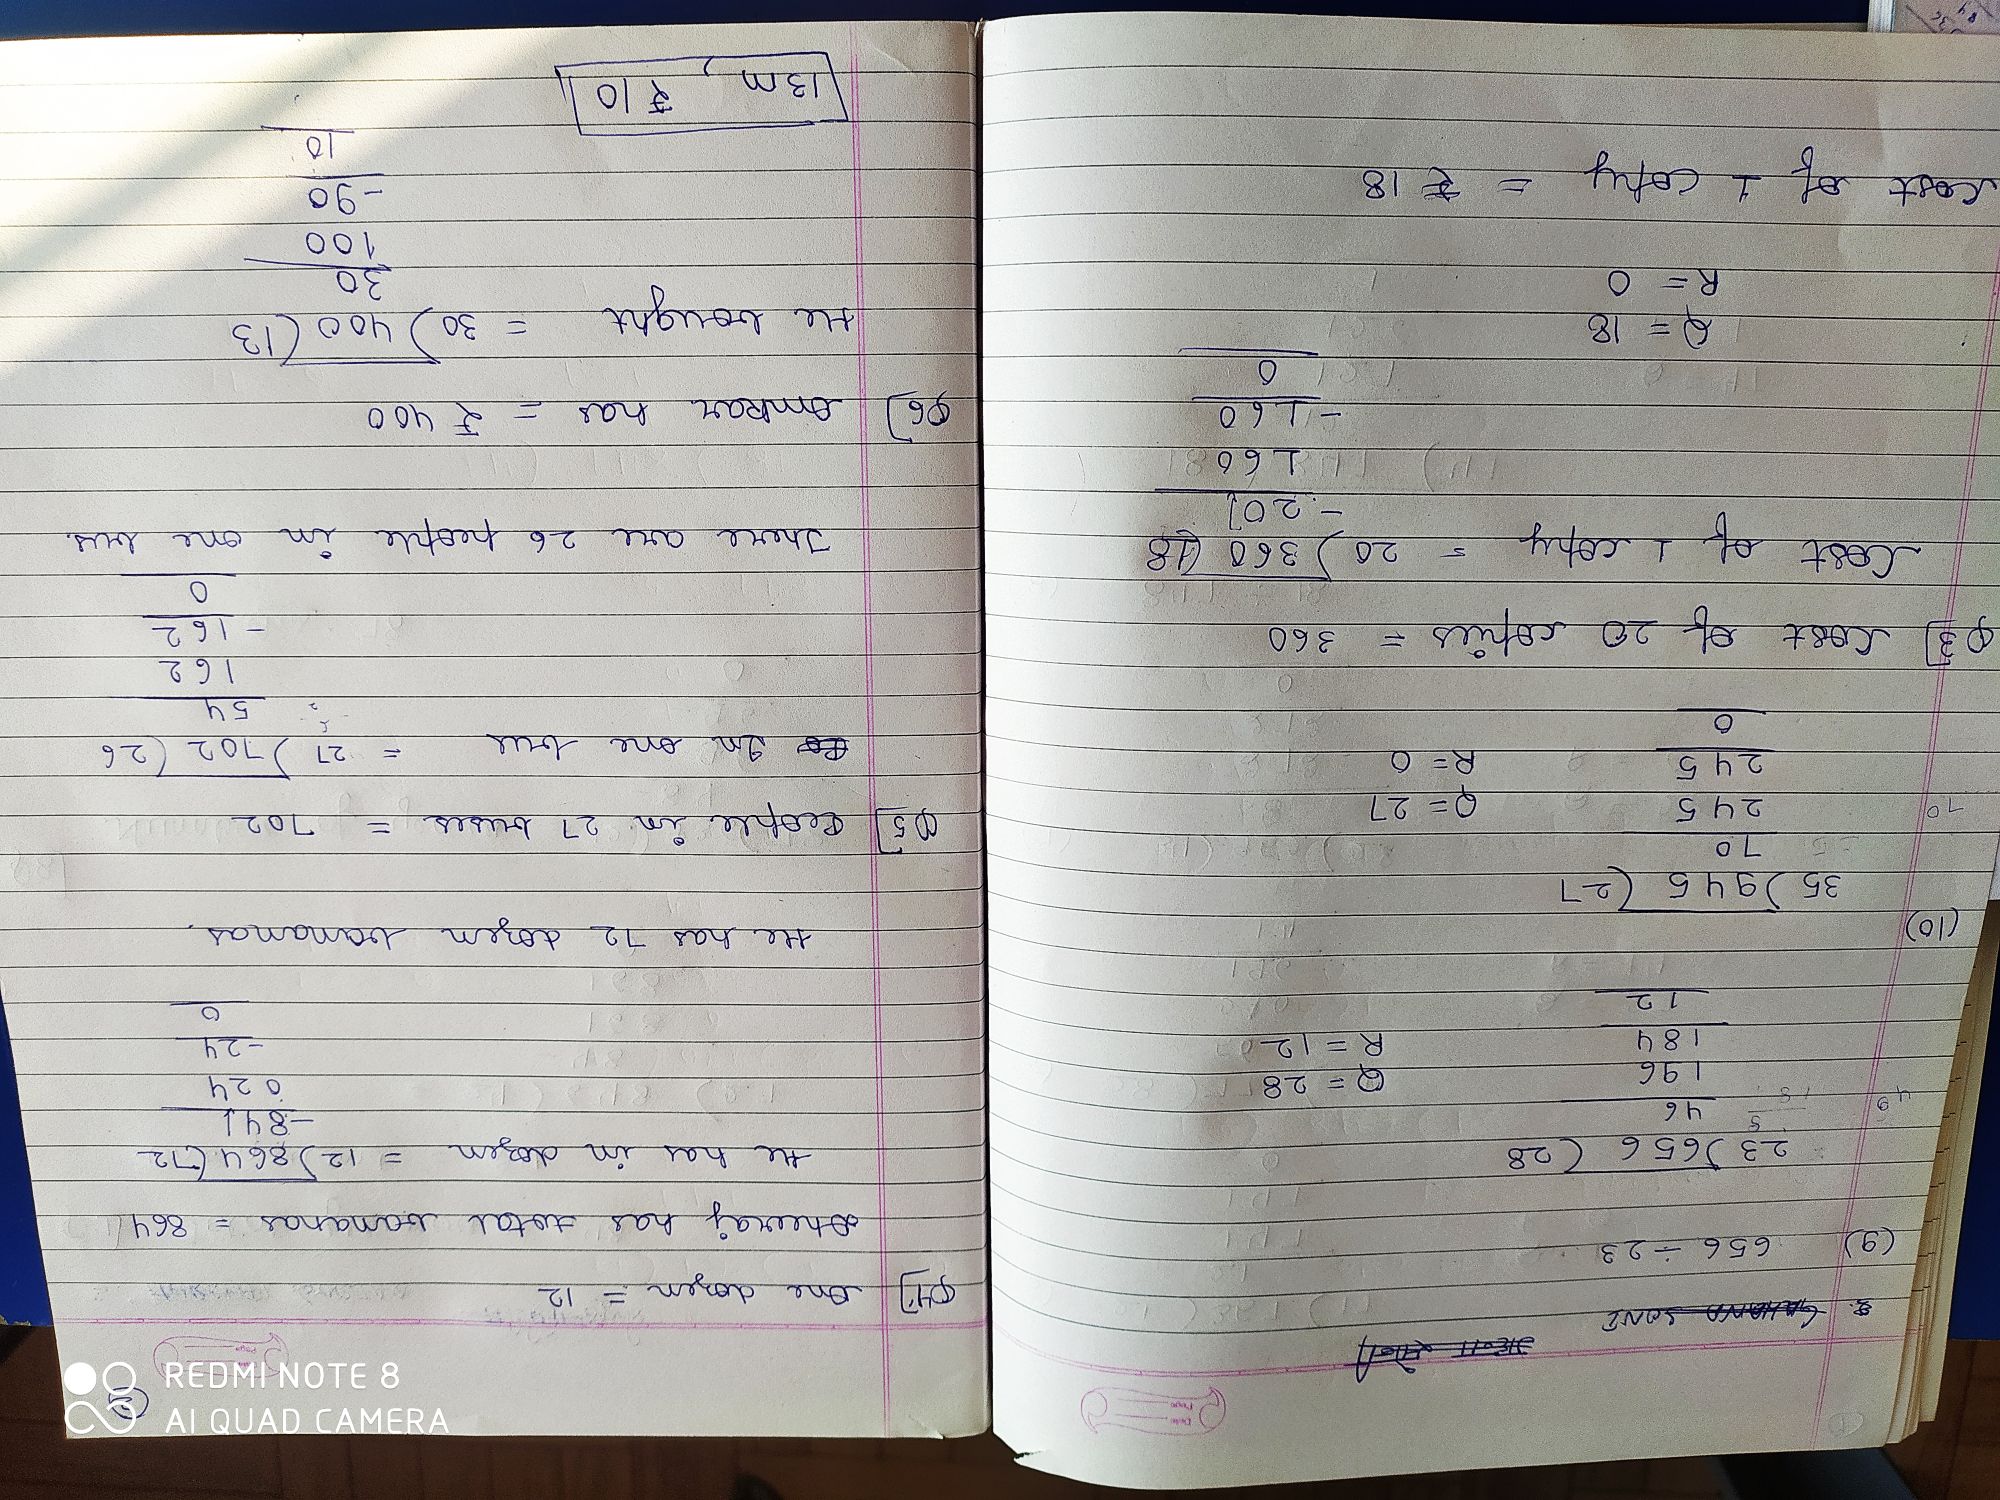 (9) 656 ÷ 23
23)656(28
46
196
184
12
Q = 28
R = 12
(10)
35)945(27
70
245
245
0
Q = 27
R = 0
Q3] Cost of 20 copies = 360
Cost of 1 copy = 20)360(18
- 20
160
- 160
0
Q = 18
R = 0
Cost of 1 copy = ₹ 18
Q4] One dozen = 12
Dheeraj has total bananas = 864
He has in dozen = 12)864(72
- 84
024
- 24
0
He has 72 dozen bananas.
Q5] People in 27 buses = 702
In one bus = 27)702(26
54
162
- 162
0
There are 26 people in one bus.
Q6] Omkar has = ₹ 400
He bought = 30)400(13
30
100
- 90
10
13m, ₹10
REDMI NOTE 8
AI QUAD CAMERA